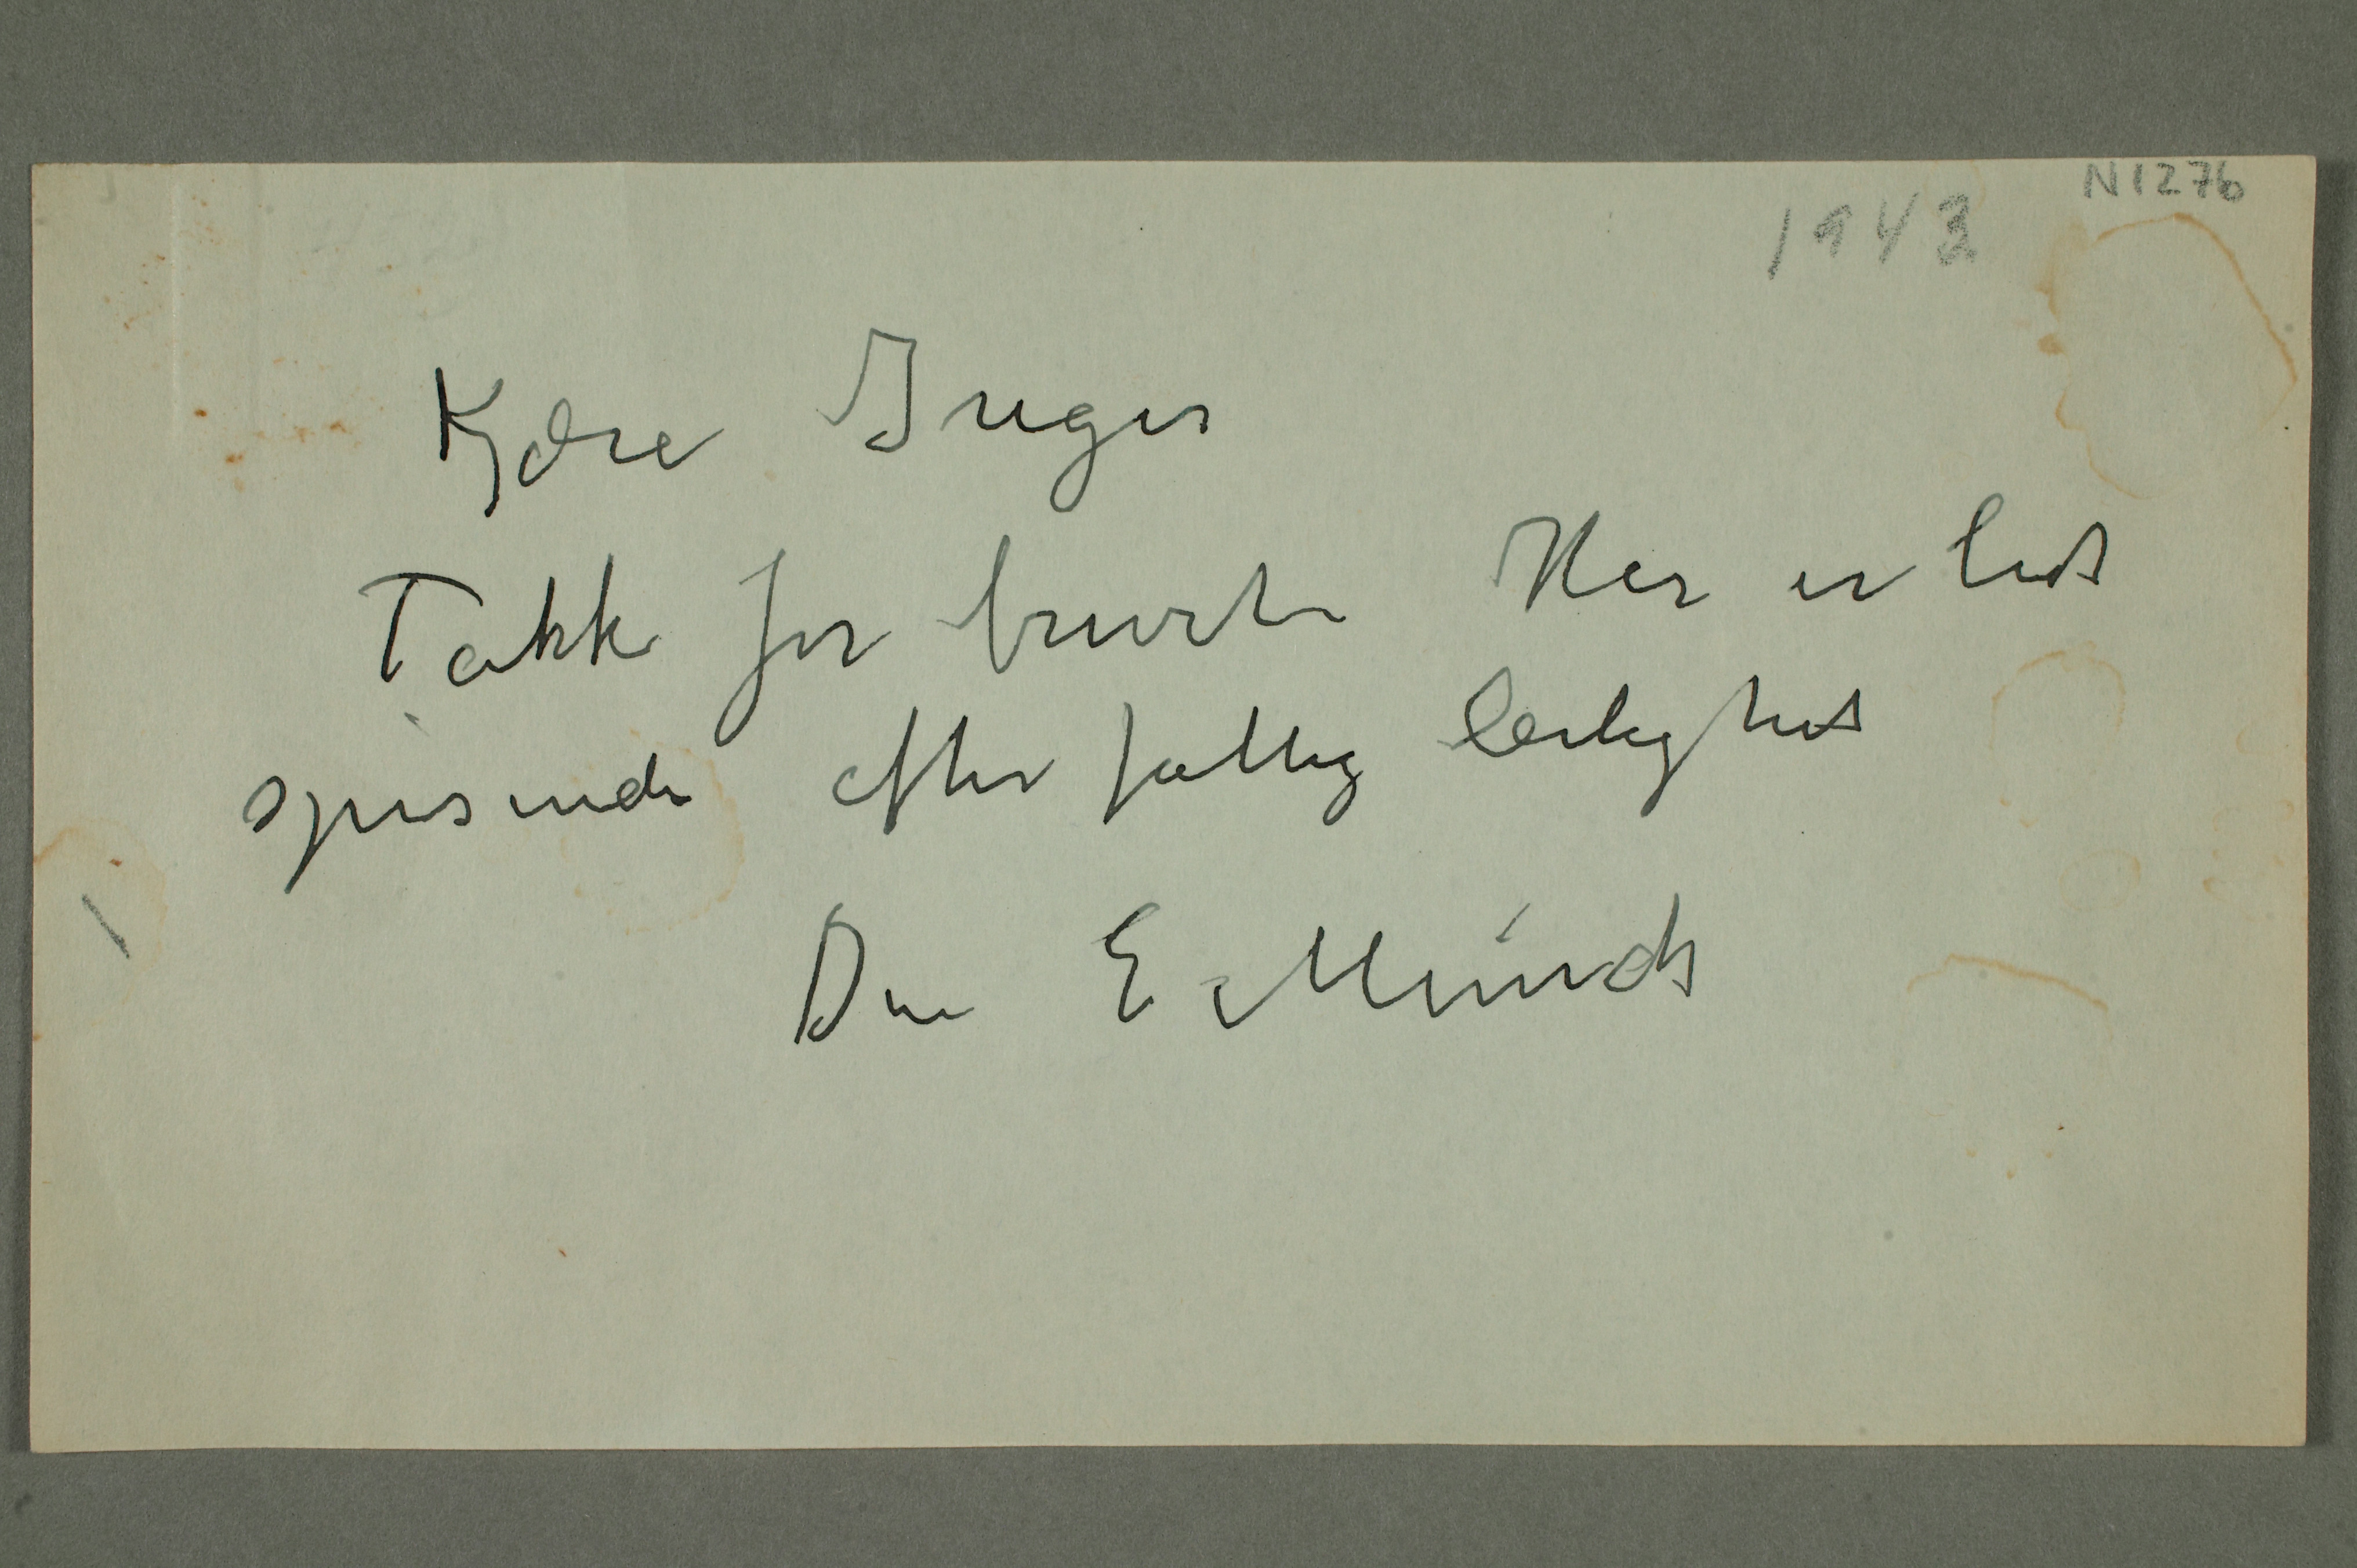 N1276
1943
Kjære Inger
Takk for brevet Her er lidt
spisende efter fattig leilighet
Din E Munch